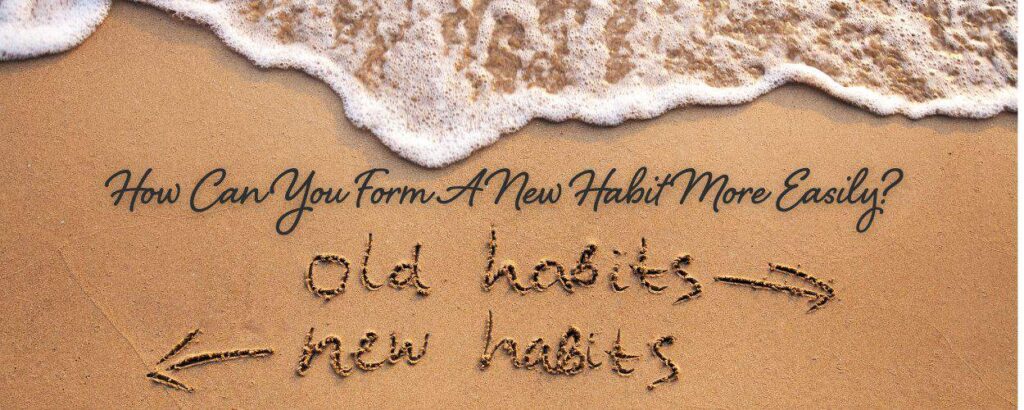 How Can You Form A New Habit More Easily?
old habits
new habits